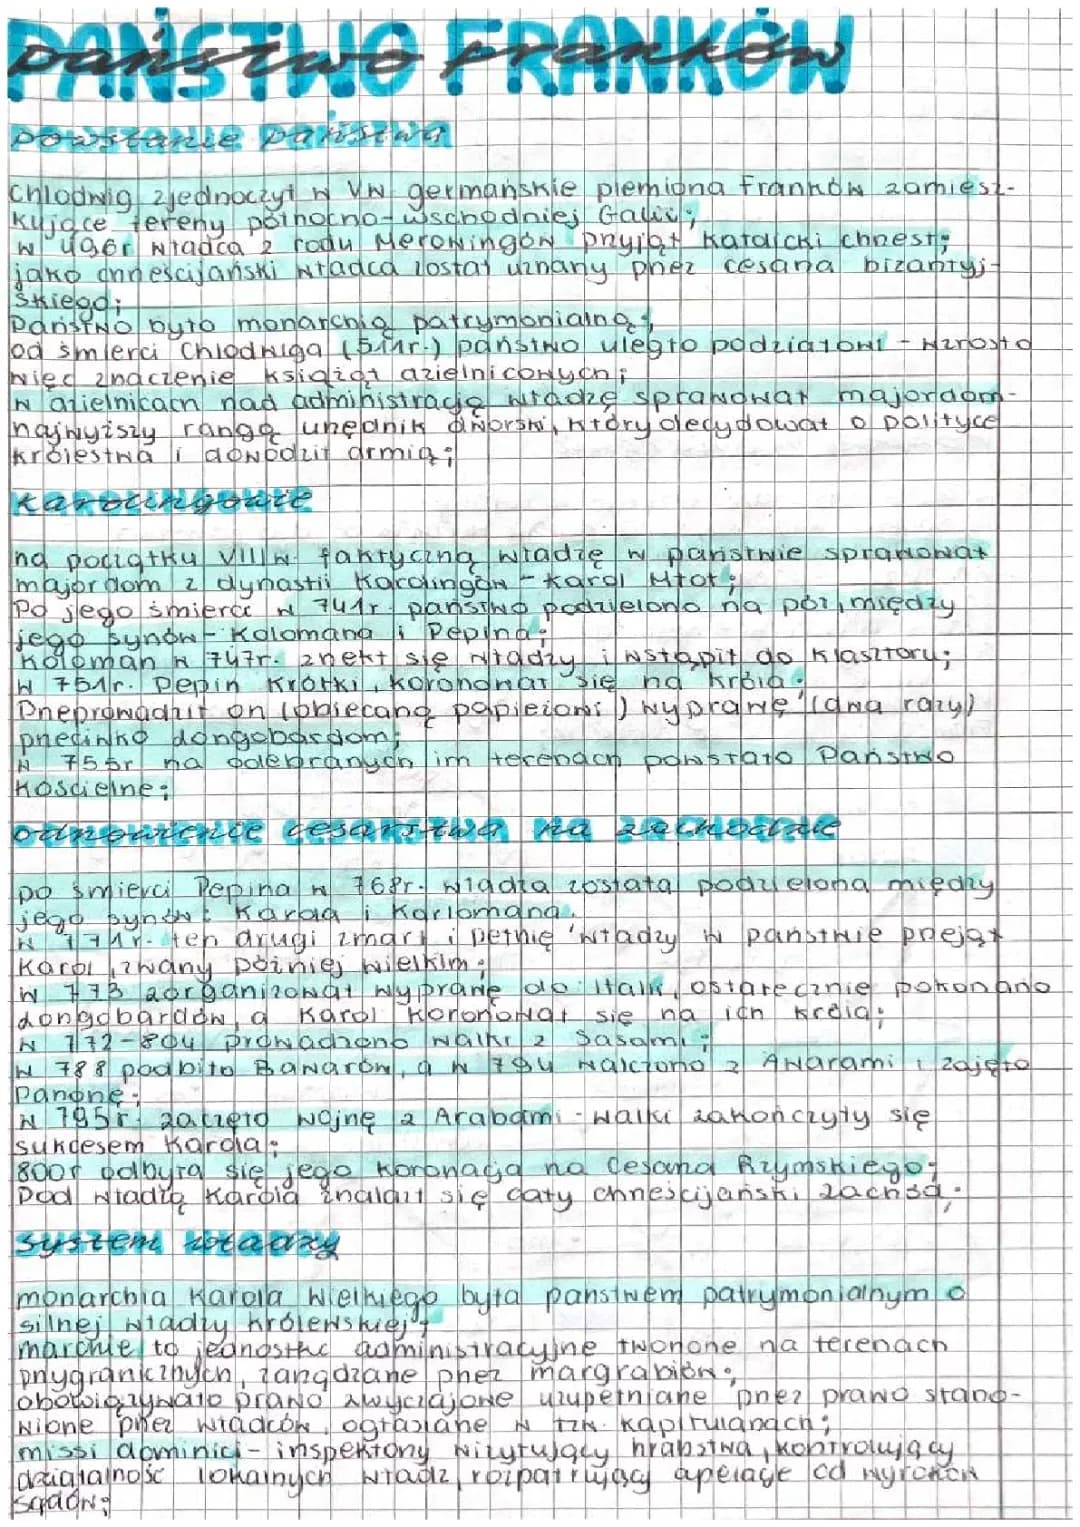 PAŃSTWO FRANKÓW
państwo franków
powstanie państwa
Chlodwig zjednoczył w VW. germańskie plemiona Franków zamiesz-
kujące tereny północno-wschodniej Galii;
w 496r władca z rodu Merowingów przyjął katolicki chrzest;
jako chrześcijański władca został uznany przez cesarza bizantyj-
skiego;
Państwo było monarchią patrymonialną;
od śmierci Chlodwiga (511r.) państwo uległo podziałowi - wzrosło
więc znaczenie książąt dzielnicowych;
w dzielnicach nad administracją władzę sprawował majordom-
najwyższy rangą urzędnik dworski, który decydował o polityce
królestwa i dowodził armią;
Karolingowie
na początku VIIIw. faktyczną władzę w państwie sprawował
majordom z dynastii Karolingów - Karol Młot;
Po jego śmierci w 741r. państwo podzielono na pół, między
jego synów - Kolomana i Pepina;
Koloman w 747r. zrzekł się władzy i wstąpił do klasztoru;
w 751r. Pepin Krótki, koronował się na króla;
Przeprowadził on (obiecaną papieżowi) wyprawę (dwa razy)
przeciwko Longobardom;
w 755r na odebranych im terenach powstało Państwo
Kościelne;
odnowienie cesarstwa na zachodzie
po śmierci Pepina w 768r. władza została podzielona między
jego synów: Karola i Karlomana.
w 771r. ten drugi zmarł i pełnię władzy w państwie przejął
Karol, zwany później wielkim;
w 773 zorganizował wyprawę do Italii, ostatecznie pokonano
Longobardów, a Karol koronował się na ich króla;
w 772-804 prowadzono walki z Sasami;
w 788 podbito Bawarów, a w 794 walczono z Awarami i zajęto
Panonę;
w 795r. zaczęto wojnę z Arabami - walki zakończyły się
sukcesem Karola;
800r odbyła się jego koronacja na Cesarza Rzymskiego;
Pod władzą Karola znalazł się cały chrześcijański zachód;
system władzy
monarchia Karola Wielkiego była państwem patrymonialnym o
silnej władzy królewskiej;
marchie to jednostki administracyjne tworzone na terenach
przygranicznych, zarządzane przez margrabiów;
obowiązywało prawo zwyczajowe uzupełniane przez prawo stano-
wione przez władców, ogłaszane w tzw. kapitularzach;
missi dominici - inspektorzy wizytujący hrabstwa, kontrolujący
działalność lokalnych władz, rozpatrujący apelacje od wyroków
sądów;